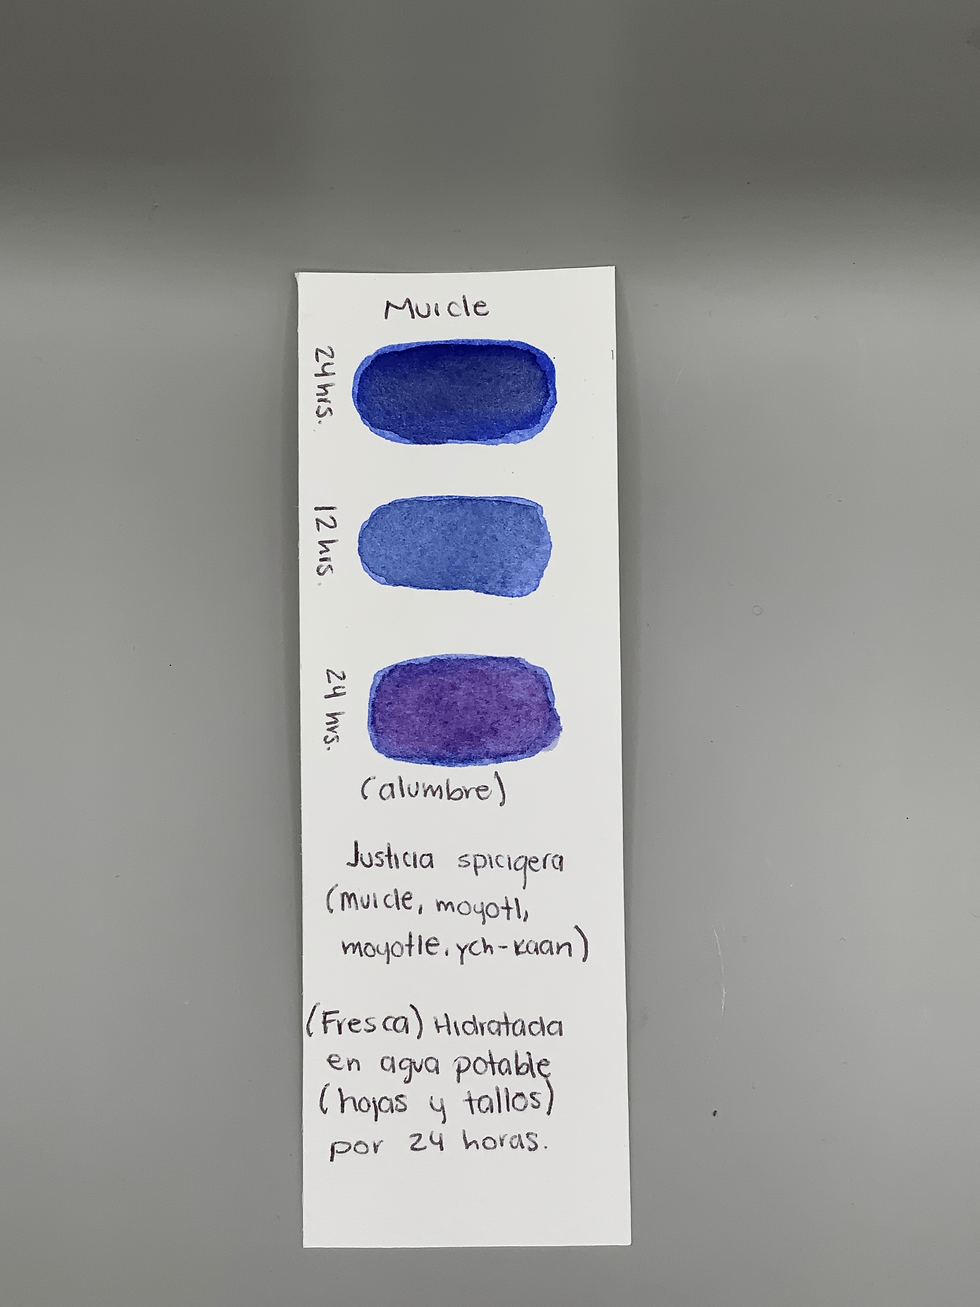 Muicle
24 hrs.
12 hrs.
24 hrs.
(alumbre)
Justicia spicigera
(muicle, moyotl,
moyotle, ych-kaan)
(Fresca) Hidratada
en agua potable
(hojas y tallos)
por 24 horas.